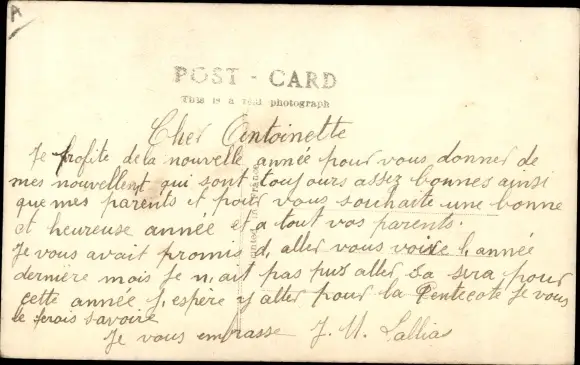 A
POST - CARD
This is a real photograph
Cher Antoinette
Je profite de la nouvelle année pour vous donner de
mes nouvellent qui sont toujours assez bonnes ainsi
que mes parents et pour vous souhaite une bonne
et heureuse année et a tout vos parents.
Je vous avait promis d, aller vous voire l, année
dernière mais Je n, ait pas puz aller sa sera pour
cette année J, espère y aller pour la Pentecote Je vous
le ferais savoire
Je vous embrasse J. M. Lallias
in France